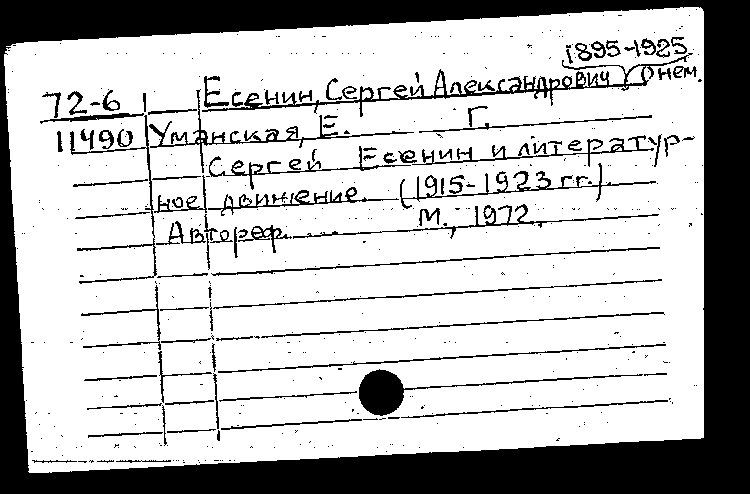 1895-1925
72-6 Есенин, Сергей Александрович, О нем.
11490 Уманская, Е. Г.
Сергей Есенин и литератур-
ное движение. (1915-1923 гг.).
Автореф. ... М., 1972.